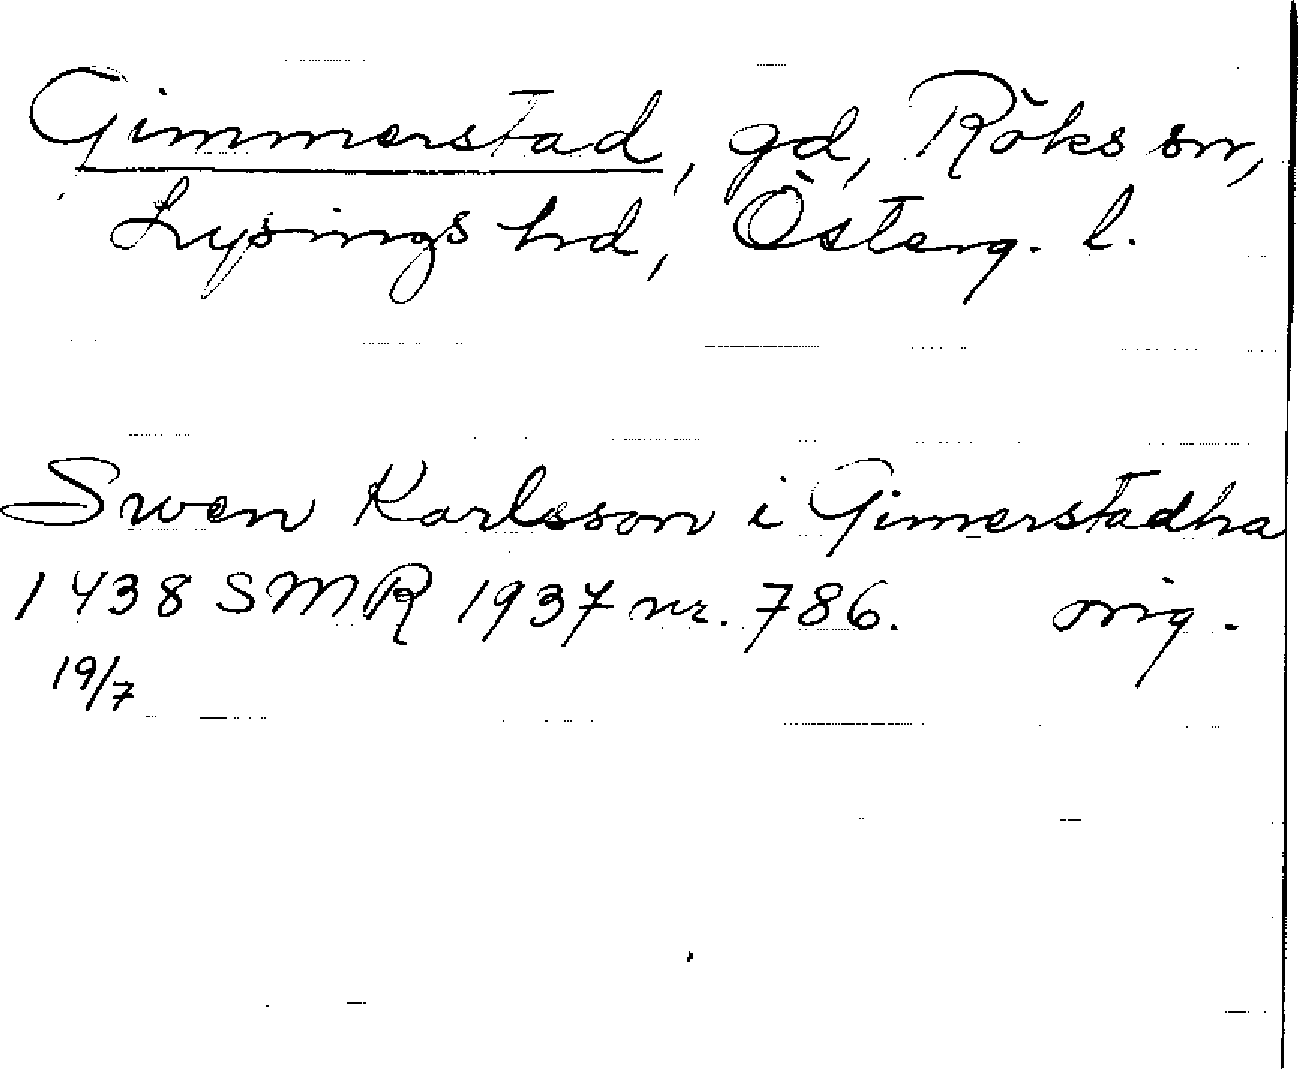 Gimmerstad, gd, Röks sn,
Lysings hd, Österg. l.
Swen Karlsson i Gimerstadha
1438 SMR 1937 nr. 786. orig.
19/7